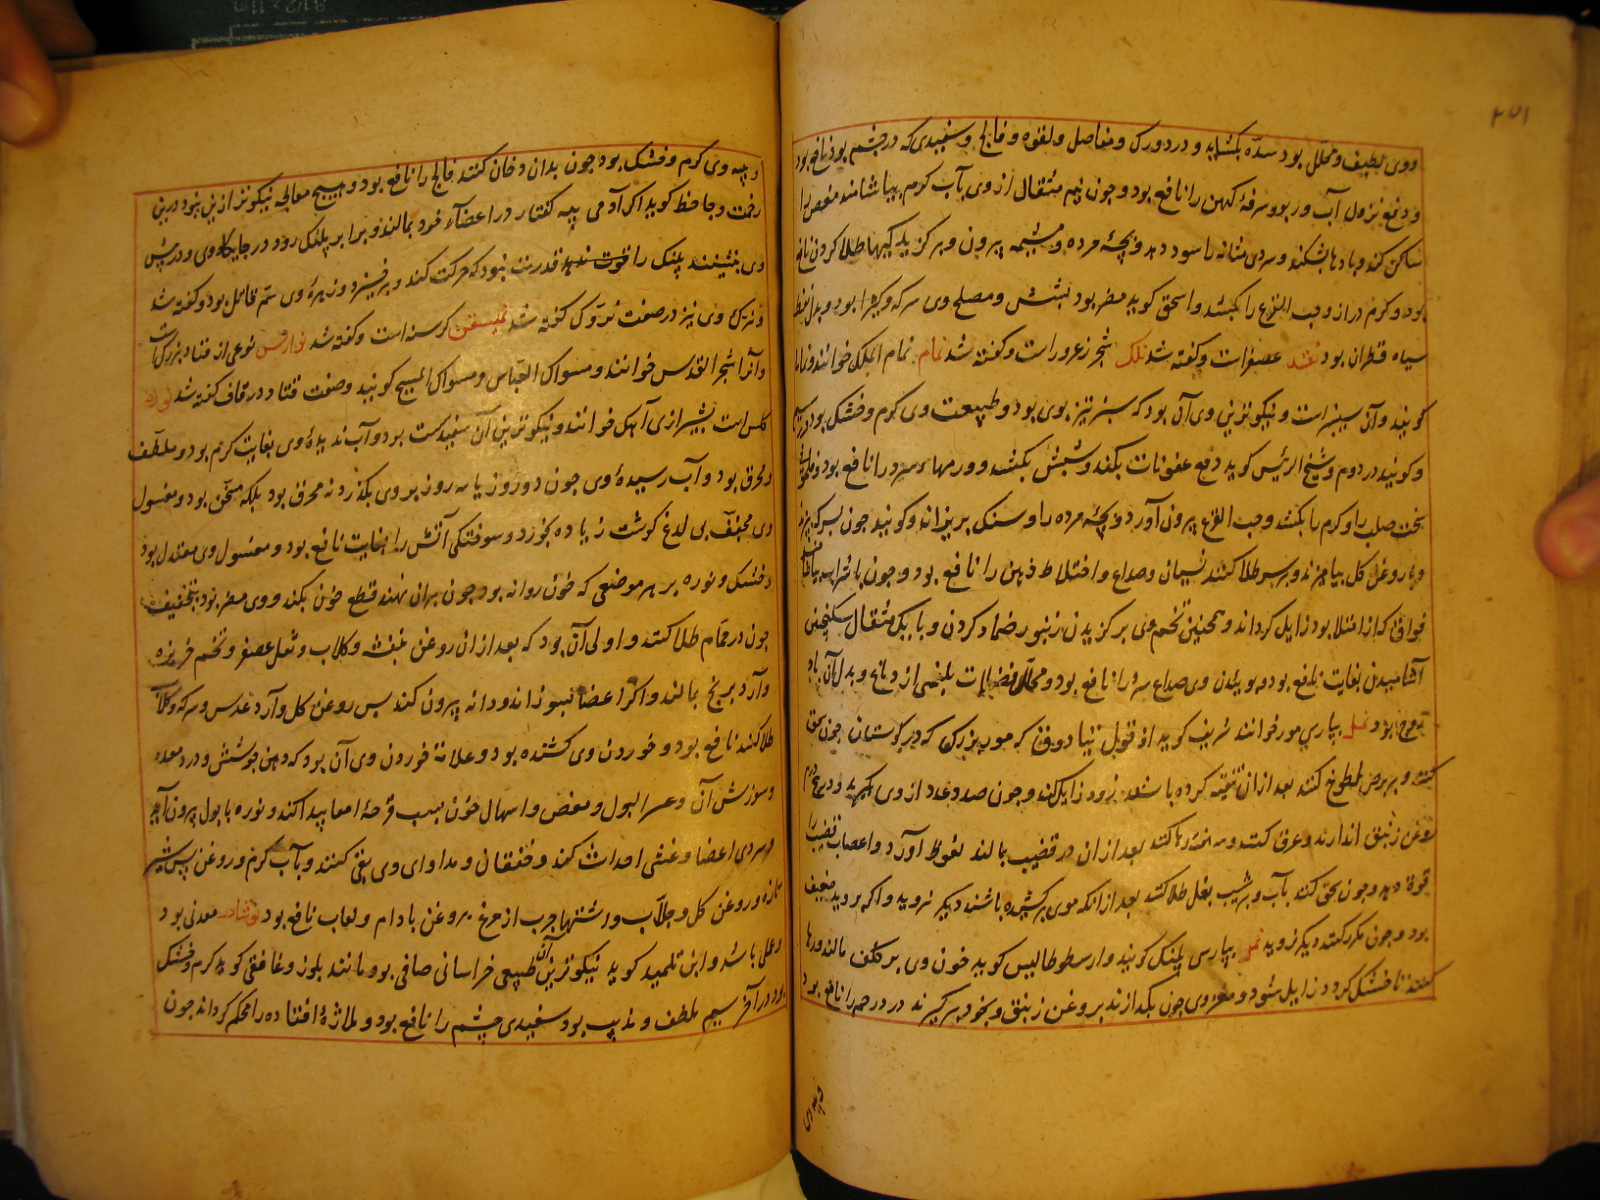 ووی لطیف و محلل بود سدّه بکشاید و درد ورک و مفاصل و لقوه و فالج و سفیدی که در چشم بود نافع بود
و دفع نزول آب و ربو و سرفهٔ کهن را نافع بود و چون نیم مثقال از وی بآب کرم بیاشامند مغص را
ساکن کند و بادها بشکند و سردی مثانه را سود دهد و بچهٔ مرده و مشیمه بیرون و بر کزیدکیها طلا کردن نافع
بود و کرم دراز و حب القرع را بکشد و اسحق کوید مضر بود بشش و مصلح وی سرکه و کثیرا بود و بدل نفط
سیاه قطران بود نقد عصفر است و کفته شد نلک شجر زعرور است و کفته شد نمام نمام الملک خوانند و نماما
کویند و آن سیسنبر است و نیکوترین وی آن بود که سبز تیز بوی بود و طبیعت وی کرم و خشک بود در سیم
و کویند در دوم و شیخ الرئیس کوید دفع عفونات بکند و شپش بکشد و ورمهاء سرد را نافع بود و
سخت صلب را و کرم را بکشد و حب القرع بیرون آورد و بچهٔ مرده را و سنک بریزاند و کویند چون بسرکه بپزند
و با روغن کل بیامیزند و بر سر طلا کنند نسیان و صداع و اختلاط ذهن را نافع بود و چون با شراب بیاشامند
فواقی که از امتلا بود زایل کرداند و همچنین تخم وی بر کزیدن زنبور ضماد کردن و با یک مثقال سکنجبین
آشامیدن بغایت نافع بود و بوییدن وی صداع سرد را نافع بود و محلل فضلات بلغمی از دماغ و بدل آن
بود نمل بپارسی مور خوانند شریف کوید از قول که مور بزرک که در کورستان چون سحق
کنند و بر برص لطوخ کنند بعد از آن تنقیه کرده باشند زود زایل کند و چون صد عدد از وی بکیرند و در پنج درم
روغن زنبق اندازند و غرق کنند و سه هفته رها کنند بعد از آن در قضیب بمالند نعوظ آورد و اعصاب قضیب را
قوة دهد و چون سحق کنند بآب و بر شیب بغل طلا کنند بعد از آنکه موی برکشیده باشند دیکر نروید و اکر بروید ضعیف
بود و چون مکرر کنند دیکر نروید نمر بپارسی پلنک کویند و ارسطوطالیس کوید خون وی بر کلف مالند و رها
کنند تا خشک کردد زایل شود و مغز وی چون بکدازند بروغن زنبق و بخود برکیرند درد رحم را نافع بود
و پیه وی
و پیه وی کرم و خشک بود چون بدان دخان کنند فالج را نافع بود و هیچ معالجه نیکوتر از این نبود درین
زحمت و جاحظ کوید اکر آدمی پیه کفتار در اعضاء خود بمالند و برابر پلنک رود در جایکاه وی و در پیش
وی بنشینند پلنک را قوت ندهد قدرت نبود که حرکت کند و برخیزد و زهرهٔ وی سم قاتل بود و کفته شد
وی نیز در صفت کفته شد نمیسقن کرسنه است و کفته شد نوارس نوعی از قتاد بزرک است
و آنرا شجر القدس خوانند و مسواک العباس و مسواک المسیح کویند و صفت قتاد در قاف کفته شد نوره
کلس است بشیرازی آهک خوانند و نیکوترین آن سفید است بود و آب ندیدهٔ وی بغایت کرم بود و ملطف
و محرق بود و آب رسیدهٔ وی چون دو روز یا سه روز بر وی بکذرد نه محرق بود بلکه مسخن بود و مغسول
وی مجفف بی لذع کوشت زیاده بخورد و سوختکی آتش را بغایت نافع بود و مغسول وی معتدل بود
و خشک و نوره بر هر موضعی که خون روانه بود چون بر آن نهند قطع خون بکند و وی مضر بود بتخفیف
چون در حمام طلا کنند و اولی آن بود که بعد از آن روغن بنفشه و کلاب و ثفل عصفر و تخم خربزه
و آرد برنج بمالند و اکر اعضا بسوزاند و دانه بیرون کند پس روغن کل و آرد عدس و سرکه و کلاب
طلا کنند نافع بود و خوردن وی کشنده بود و علامة خوردن وی آن بود که دهن جوشش و درد معده
و سوزش آن و عسر البول و مغص و اسهال خون بسبب قرحهٔ امعا پیدا کند و نوره با بول بیرون آید
و سردی اعضا و غشی احداث کند و خفقان و مداوای وی بقی کنند و بآب کرم و روغن پس شیر
تازه و روغن کل و جلاب و اشتنهاء چرب از مرغ بروغن بادام و لعاب نافع بود نوشادر معدنی بود
و عملی باشد و ابن تلمید کوید نیکوترین آن طبیعی خراسانی صافی بود مانند بلور و غافقی کوید کرم و خشک
بود در آخر سیم ملطف و مذیب بود سفیدی چشم را نافع بود و ملازهٔ افتاده را محکم کرداند چون